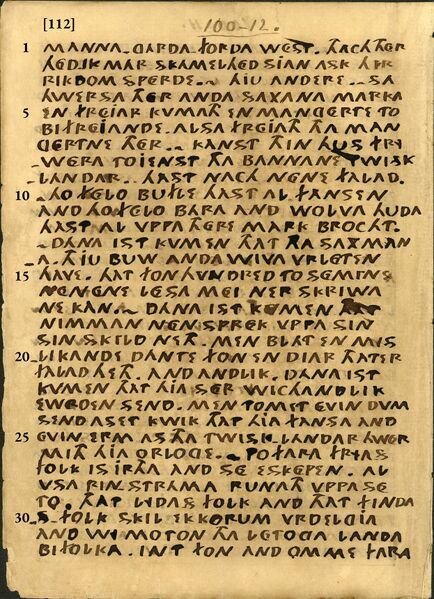 [112]
100-12.
1 MANNA. GARDA FORDA WEST. THACH THER
HEDIK MAR SKAMELHED SIAN ASK HIR
RIKDOM SPERDE.. THIU ANDERE.. SA
HWERSA THER ANDA SAXANA MARKA
5 EN FREIAR KVMATH EN MANGERTE TO
BIFREIANDE. ALSA FREIATH THA MAN
GERTNE THER.. KANST THIN HUS FRY
WERA TOJENST THA BANNANE TWISK
LANDAR.. HAST NACH NENE FALAD.
10 HO FELO BUFLE HAST AL FANSEN
AND HO FELO BARA AND WOLVA HUDA
HAST AL VPPA THERE MARK BROCHT.
DANA IST KVMEN THAT THA SAXMAN
NA. THIU BUW ANDA WIVA VRLETEN
15 HAVE. THAT FON HVNDRED TOSEMINE
NEN ENE LESA MEI NER SKRIWA
NE KAN.. DANA IST KVMEN THAT
NIMMAN NEN SPREK VPPA SIN
SIN SKILD NETH. MEN BLAT EN MIS
20 LIKANDE DANTE FON EN DIAR THATER
FALAD HETH. ANDANDLIK. DANA IST
KVMEN THAT HIA SER WICHANDLIK
EWRDEN SEND. MEN TOMET EVIN DVM
SEND ASET KWIK THAT HIA FANSA AND
25 EVIN ERM AS THA TWISKLANDAR HWER
MITH HIA ORLOGE.. PO FARA FRYAS
FOLK IS IRTHA AND SE ESKEPEN. AL
VSA RINSTRAMA RUNATH VPPA SE
TO. THAT LYDAS FOLK AND THAT FINDA
30 S FOLK SKIL EKKORUM VRDELGIA
AND WI MOTON THA LETOGA LANDA
BIFOLKA. INT FON AND OMME FARA